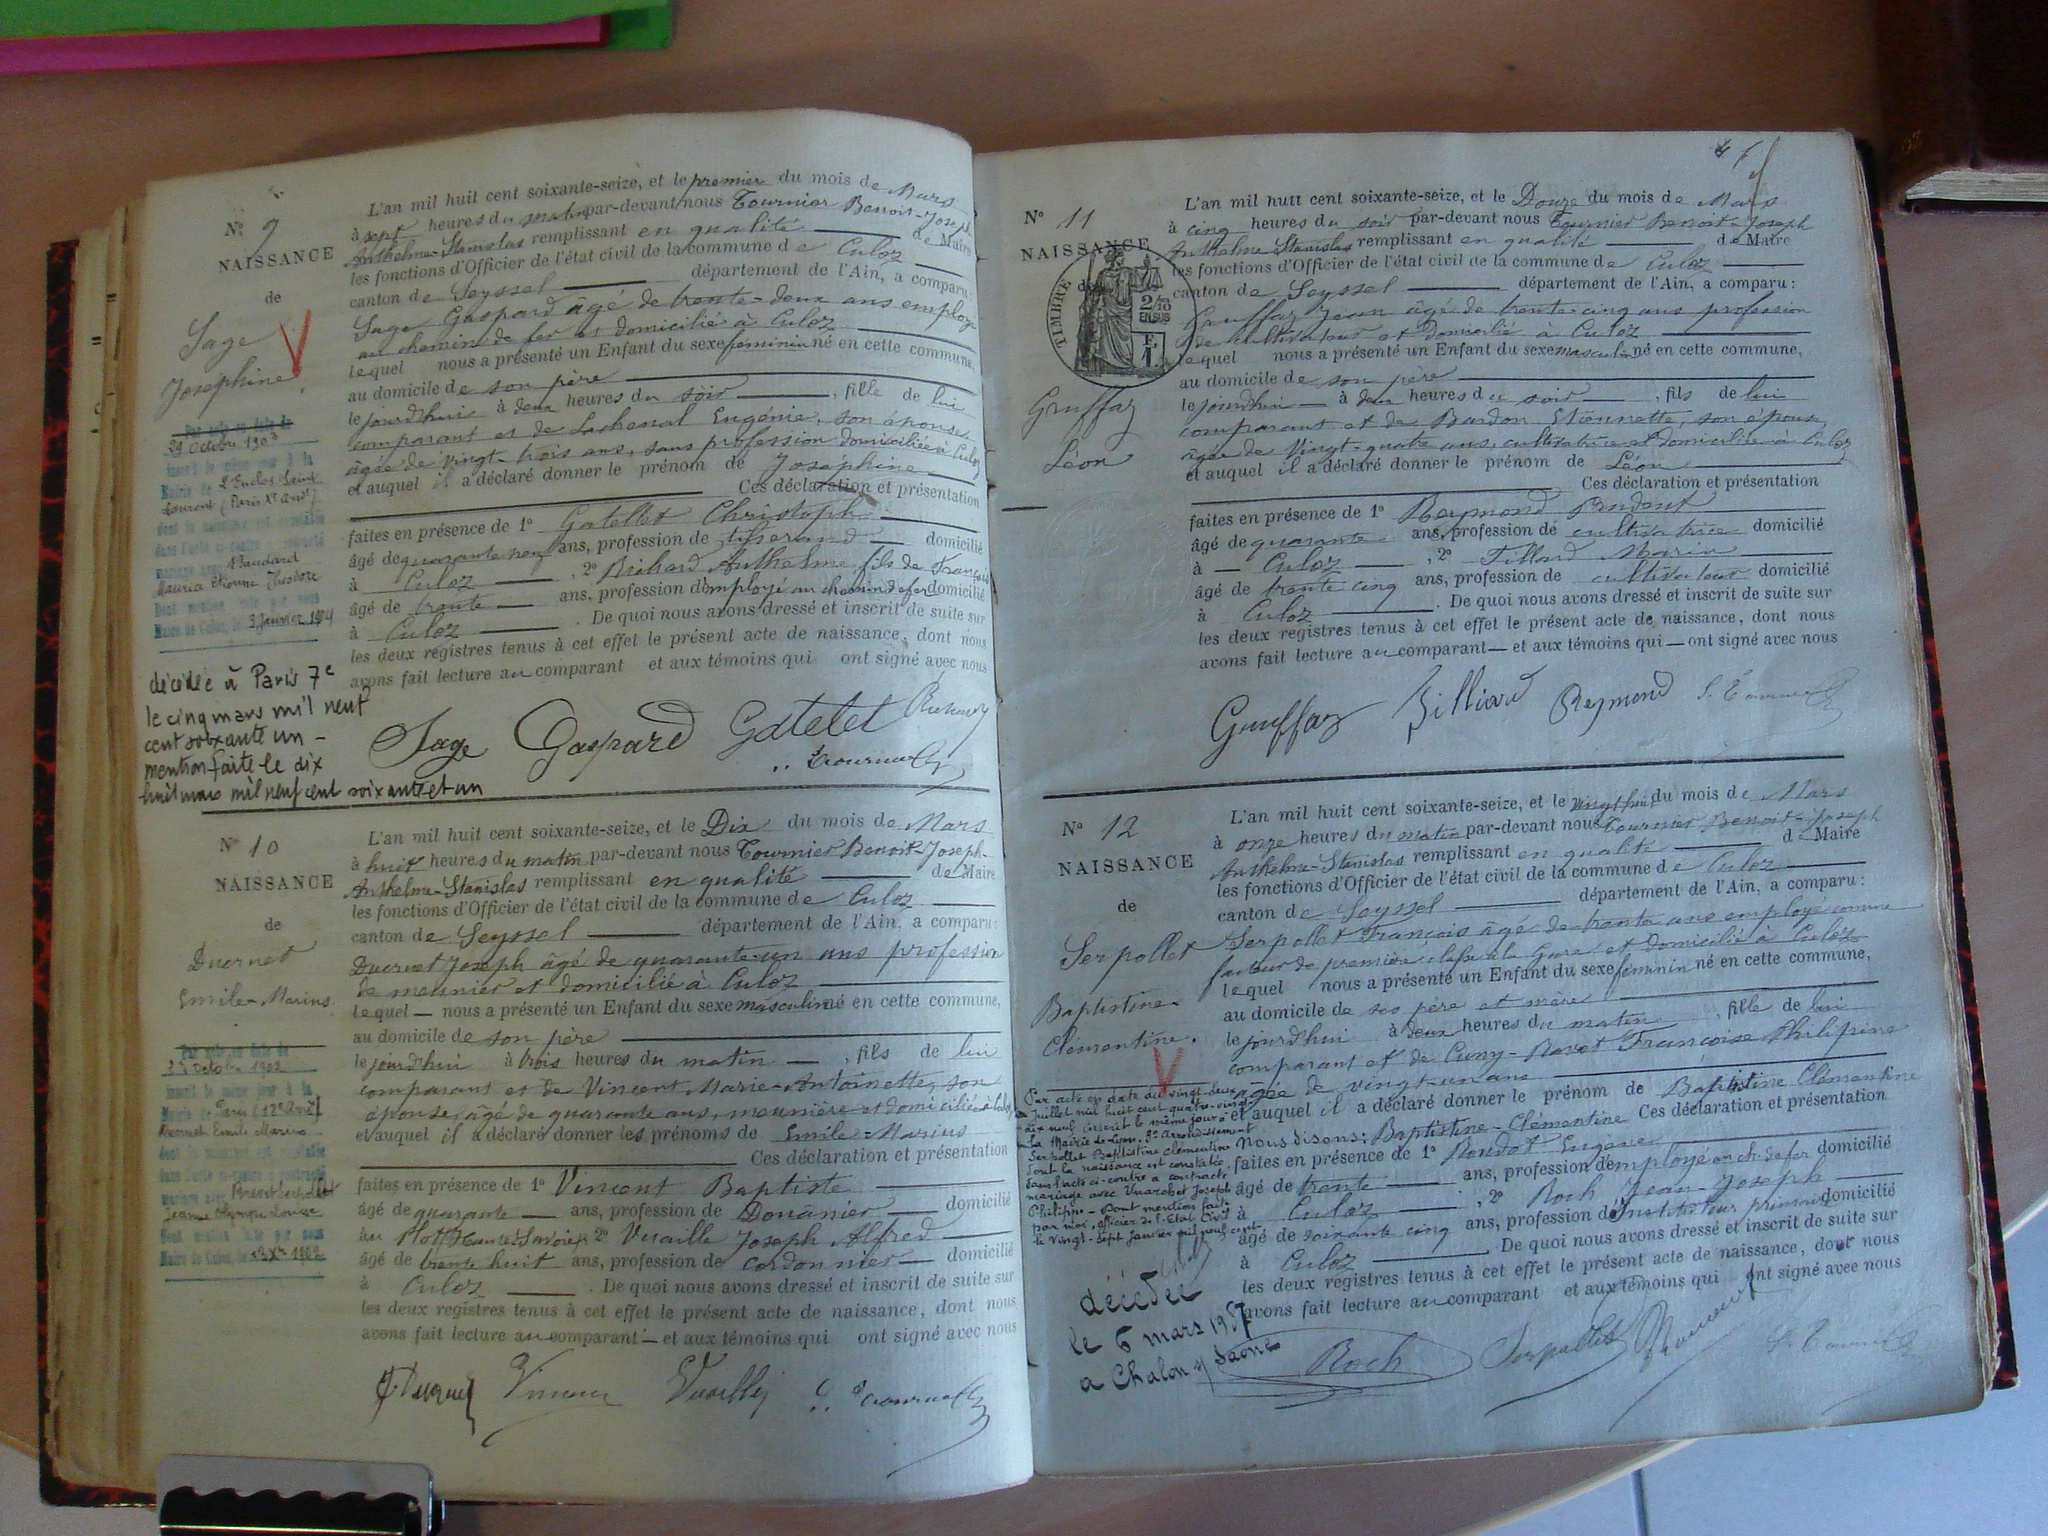 N° 9
NAISSANCE
de
Sage
Josephine
L'an mil huit cent soixante-seize, et le premier du mois de Mars
à sept heures du matin par-devant nous Tournier Benoit-Joseph
Anthelme-Stanislas remplissant en qualité de Maire
les fonctions d'Officier de l'état civil de la commune de Culoz
canton de Seyssel département de l'Ain, a comparu:
Sage Gaspard âgé de trente-deux ans employé
au chemin de fer et domicilié à Culoz
lequel nous a présenté un Enfant du sexe féminin né en cette commune,
au domicile de son père
le jourd'hui à deux heures du soir, fille de lui
comparant et de Lachenal Eugénie, son épouse,
âgée de vingt-trois ans, sans profession domiciliée à Culoz
et auquel il a déclaré donner le prénom de Joséphine
Ces déclaration et présentation
faites en présence de 1° Gatellet Christophe
âgé de quarante neuf ans, profession de tisserand domicilié
à Culoz, 2° Richard Anthelme fils de François
âgé de trente ans, profession d'employé au chemin de fer domicilié
à Culoz. De quoi nous avons dressé et inscrit de suite sur
les deux registres tenus à cet effet le présent acte de naissance, dont nous
avons fait lecture au comparant et aux témoins qui ont signé avec nous
Par acte en date du
29 Octobre 1903
inscrit le même jour à la
Mairie de l'Enclos Saint
Laurent (Paris Xe arrdt)
dont la naissance est constatée
dans l'acte ci-contre a contracté
mariage avec Baudard
Maurice Etienne Théodore
Dont mention faite par nous
Maire de Culoz, le 3 Janvier 1904
décédée à Paris 7e
le cinq mars mil neuf
cent soixante un -
mention faite le dix
huit mars mil neuf cent soixante et un
Sage Gaspard Gatelet
N° 10
NAISSANCE
de
Ducret
Emile-Marius
L'an mil huit cent soixante-seize, et le Dix du mois de Mars
à huit heures du matin par-devant nous Tournier Benoit-Joseph-
Anthelme-Stanislas remplissant en qualité de Maire
les fonctions d'Officier de l'état civil de la commune de Culoz
canton de Seyssel département de l'Ain, a comparu:
Ducret Joseph âgé de quarante-un ans profession
de meunier et domicilié à Culoz
lequel nous a présenté un Enfant du sexe masculin né en cette commune,
au domicile de son père
le jourd'hui à trois heures du matin, fils de lui
comparant et de Vincent Marie-Antoinette, son
épouse, âgé de quarante ans, meunière et domiciliée à Culoz
et auquel il a déclaré donner les prénoms de Emile-Marius
Ces déclaration et présentation
faites en présence de 1° Vincent Baptiste
âgé de quarante ans, profession de Douanier domicilié
au (Haute-Savoie), 2° Vuaille Joseph Alfred
âgé de trente huit ans, profession de cordonnier domicilié
à Culoz. De quoi nous avons dressé et inscrit de suite sur
les deux registres tenus à cet effet le présent acte de naissance, dont nous
avons fait lecture au comparant et aux témoins qui ont signé avec nous
Par acte en date du
Octobre 1902
inscrit le même jour à la
Mairie de Paris (12e Arrdt)
Ducret Emile Marius
dont la naissance est constatée
dans l'acte ci-contre a contracté
mariage avec
Jeanne Olympe Louise
Dont mention faite par nous
Maire de Culoz, le 1902
N° 11
NAISSANCE
de
TIMBRE
2/10
EN SUS
F.
1.
Gruffaz
Léon
L'an mil huit cent soixante-seize, et le Douze du mois de Mars
à cinq heures du soir par-devant nous Tournier Benoit-Joseph
Anthelme Stanislas remplissant en qualité de Maire
les fonctions d'Officier de l'état civil de la commune de Culoz
canton de Seyssel département de l'Ain, a comparu:
Gruffaz Jean âgé de trente-cinq ans profession
de cultivateur et domicilié à Culoz
lequel nous a présenté un Enfant du sexe masculin né en cette commune,
au domicile de son père
le jourd'hui à deux heures du soir, fils de lui
comparant et de Burdon Etiennette, son épouse,
âgée de Vingt-quatre ans, cultivatrice et domiciliée à Culoz
et auquel il a déclaré donner le prénom de Léon
Ces déclaration et présentation
faites en présence de 1° Reymond
âgé de quarante ans, profession de cultivatrice domicilié
à Culoz, 2° Marin
âgé de trente cinq ans, profession de cultivateur domicilié
à Culoz. De quoi nous avons dressé et inscrit de suite sur
les deux registres tenus à cet effet le présent acte de naissance, dont nous
avons fait lecture au comparant et aux témoins qui ont signé avec nous
Gruffaz Billiard Reymond
N° 12
NAISSANCE
de
Serpollet
Baptistine-
Clémentine.
L'an mil huit cent soixante-seize, et le vingt huit du mois de Mars
à onze heures du matin par-devant nous Tournier Benoit-Joseph
Anthelme-Stanislas remplissant en qualité de Maire
les fonctions d'Officier de l'état civil de la commune de Culoz
canton de Seyssel département de l'Ain, a comparu:
Serpollet François âgé de trente ans employé comme
facteur de première classe à la Gare et domicilié à Culoz
lequel nous a présenté un Enfant du sexe féminin né en cette commune,
au domicile de ses père et mère
le jourd'hui à deux heures du matin, fille de lui
comparant et de Cuny-Ravet Françoise Philipine
âgée de vingt-un ans
et auquel il a déclaré donner le prénom de Baptistine Clémentine
Nous disons: Baptistine-Clémentine Ces déclaration et présentation
faites en présence de 1° Rondot Eugène
âgé de trente ans, profession d'employé au ch. de fer domicilié
à Culoz, 2° Roch Jean-Joseph
âgé de soixante cinq ans, profession d'instituteur primaire domicilié
à Culoz. De quoi nous avons dressé et inscrit de suite sur
les deux registres tenus à cet effet le présent acte de naissance, dont nous
avons fait lecture au comparant et aux témoins qui ont signé avec nous
Par acte en date du vingt-deux
Juillet mil huit cent quatre-vingt-
dix neuf inscrit le même jour à
la Mairie de Lyon, 3e Arrondissement
Serpollet Baptistine Clémentine
dont la naissance est constatée
dans l'acte ci-contre a contracté
mariage avec Joseph
Philippe - Dont mention faite
par moi, officier de l'Etat Civil
le Vingt-sept Janvier mil neuf cent
décédée
le 6 mars 1957
a Chalon s/ Saône
Roch Serpollet